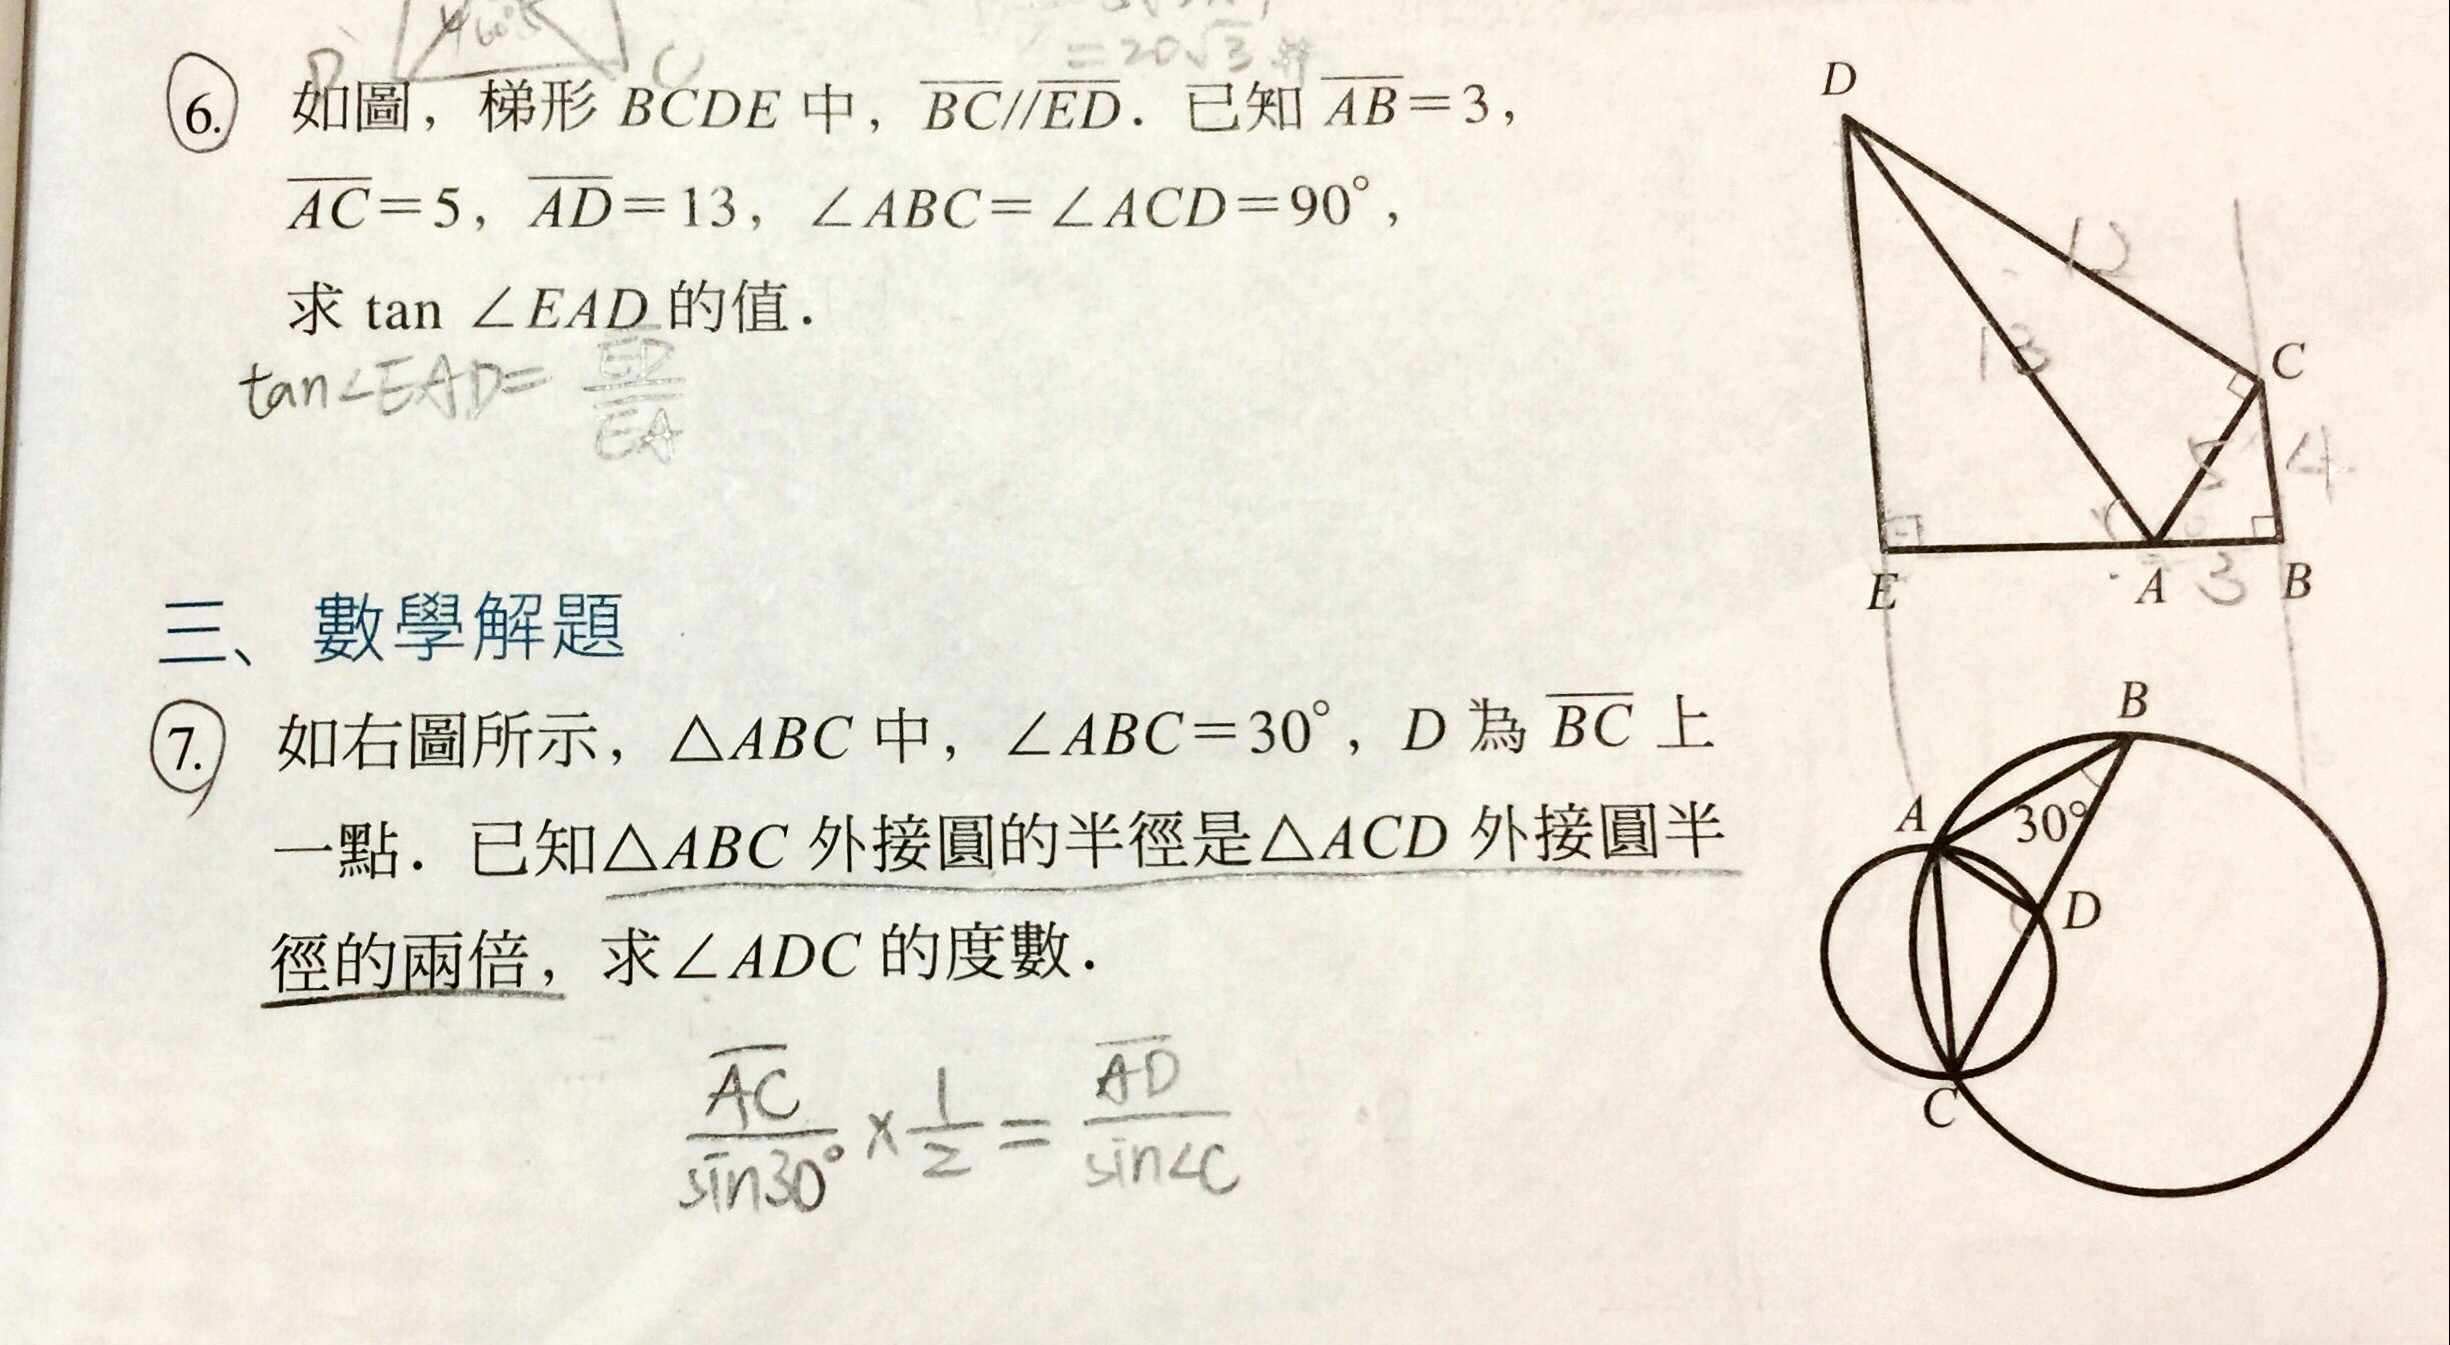 =20√3
6. 如圖，梯形 BCDE 中，BC//ED．已知 AB=3，
AC=5，AD=13，∠ABC=∠ACD=90°，
求 tan ∠EAD 的值．
tan∠EAD= ED/EA
D
12
13
C
5
4
E
A
3
B
三、數學解題
7. 如右圖所示，△ABC 中，∠ABC=30°，D 為 BC 上
一點．已知△ABC 外接圓的半徑是△ACD 外接圓半
徑的兩倍，求∠ADC 的度數．
AC/sin30° × 1/2 = AD/sin∠C
B
A
30°
D
C